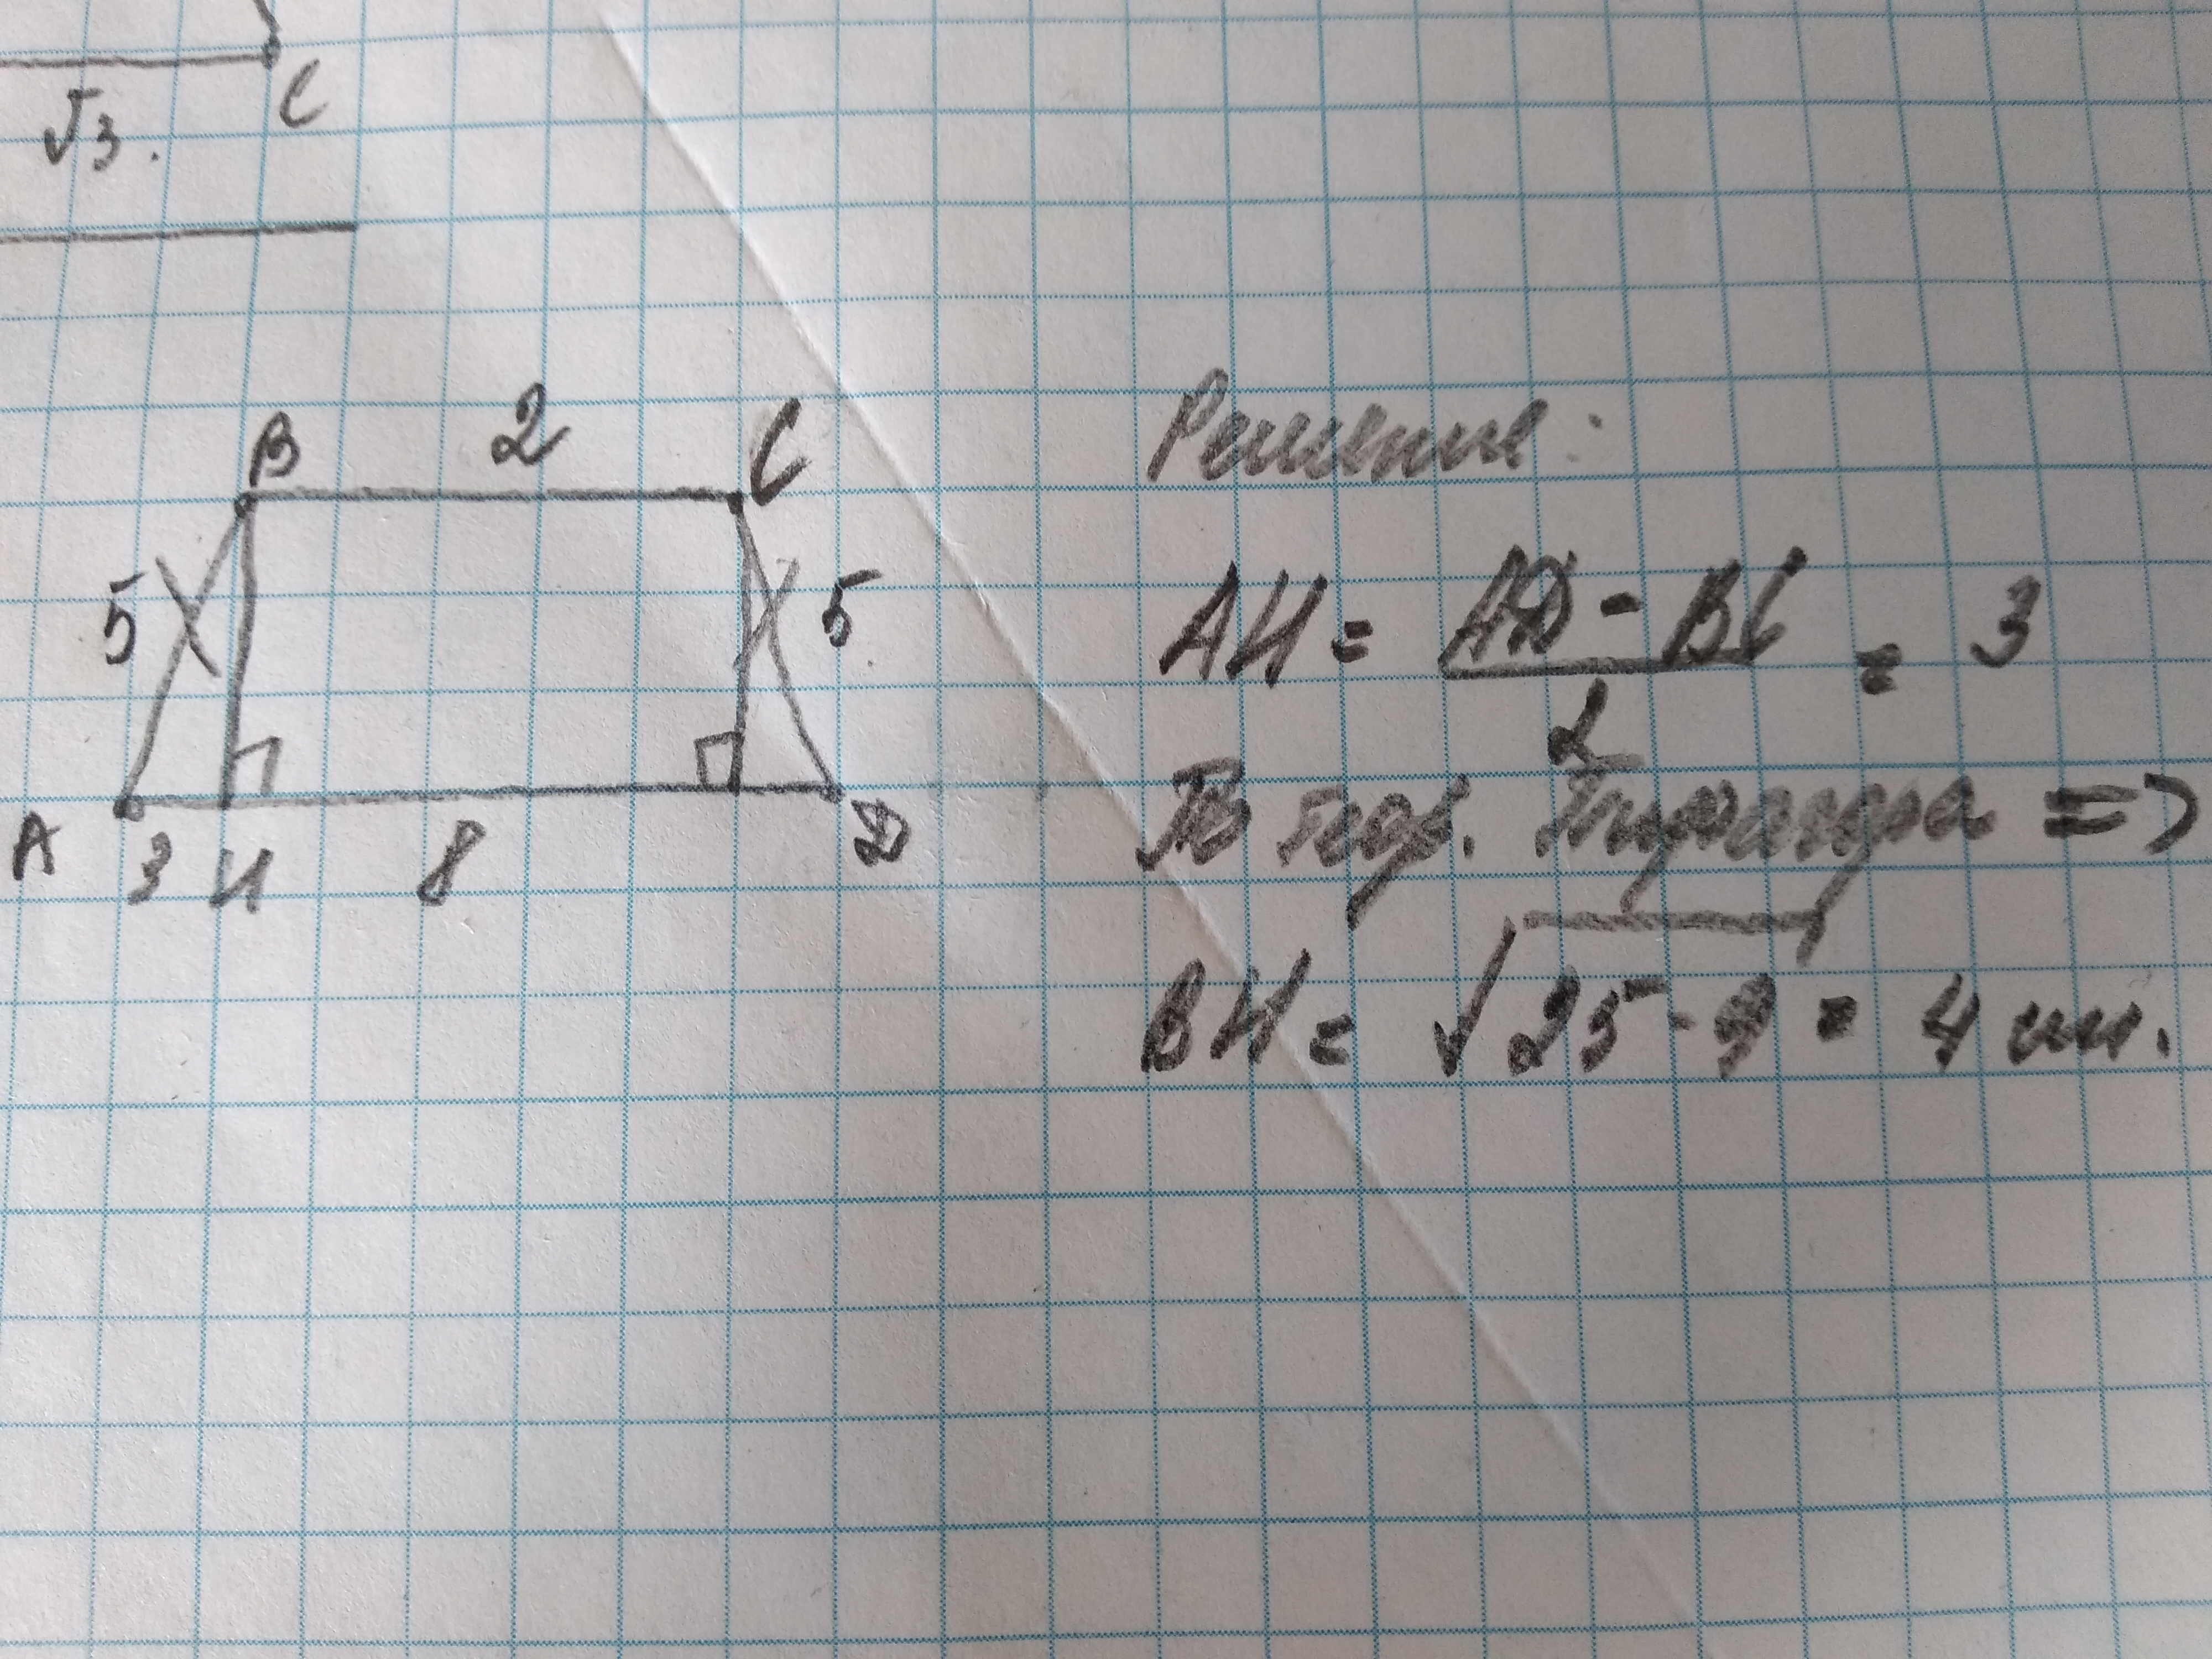 C
√3.
B 2 C
5 5
A 3 H 8 D
Решение:
AH = AD - BC / 2 = 3
По теор. Пифагора =>
BH = √25 - 9 = 4 см.